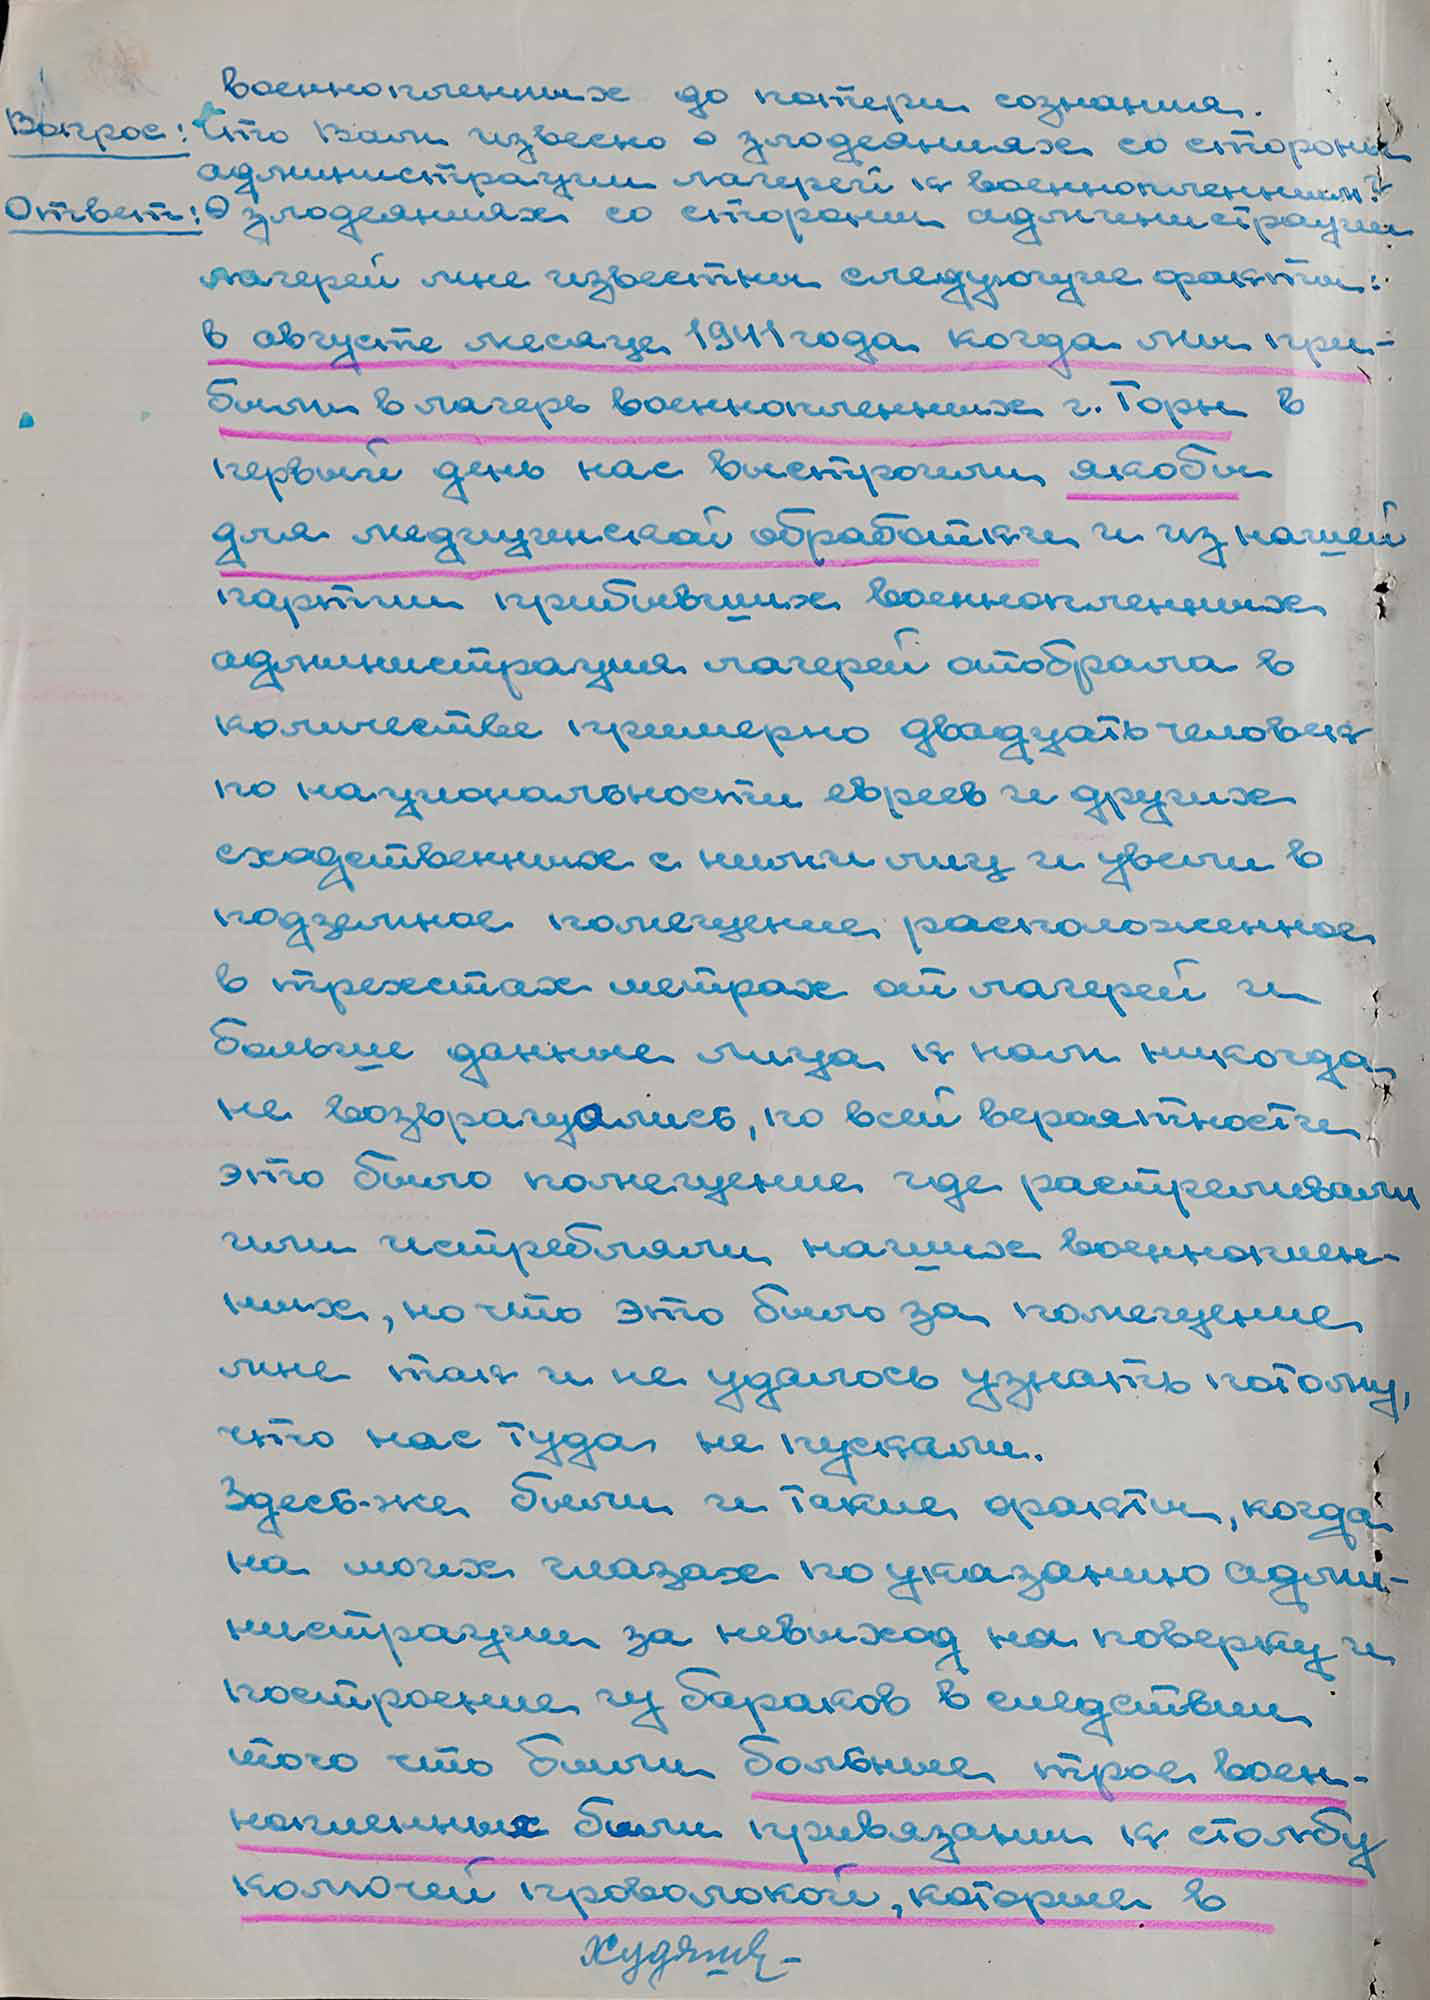 военнопленных до потери сознания.
Вопрос: Что Вам извесно о злодеяниях со стороны
администрации лагерей к военнопленным?
Ответ: О злодеяниях со стороны администрации
лагерей мне известны следующие факты:
в августе месяце 1941 года когда мы при-
были в лагерь военнопленных г. Торн в
первый день нас выстроили якобы
для медицинской обработки и из нашей
партии прибывших военнопленных
администрация лагерей отобрала в
количестве примерно двадцать человек
по национальности евреев и других
сходственных с ними лиц и увели в
подземное помещение расположенное
в трехстах метрах от лагерей и
больше данные лица к нам никогда
не возвращались, по всей вероятности
это было помещение где растреливали
или истребляли наших военноплен-
ных, но что это было за помещение
мне так и не удалось узнать потому,
что нас туда не пускали.
Здесь-же были и такие факты, когда
на моих глазах по указанию адми-
нистрации за невыход на поверку и
построение из бараков в следствии
того что были больные трое воен-
нопленных были привязаны к столбу
колючей проволокой, которые в
Худяшев